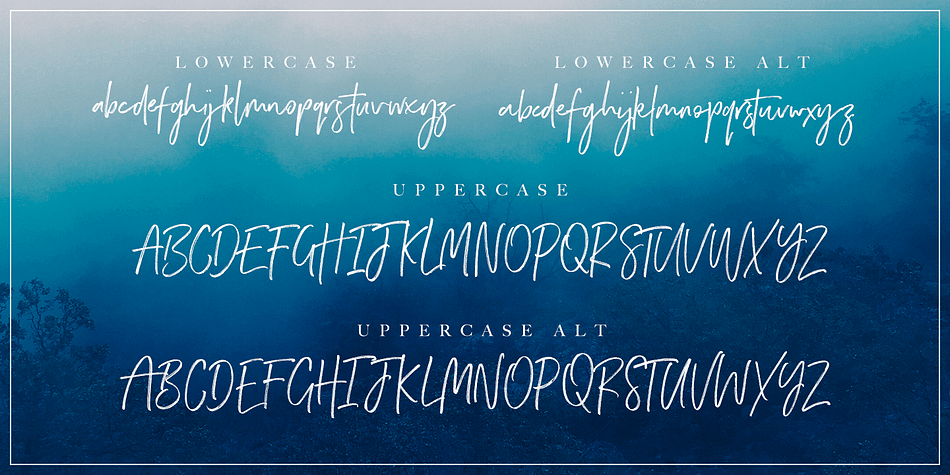 LOWERCASE
abcdefghijklmnopqrstuvwxyz
LOWERCASE ALT
abcdefghijklmnopqrstuvwxyz
UPPERCASE
ABCDEFGHIJKLMNOPQRSTUVWXYZ
UPPERCASE ALT
ABCDEFGHIJKLMNOPQRSTUVWXYZ